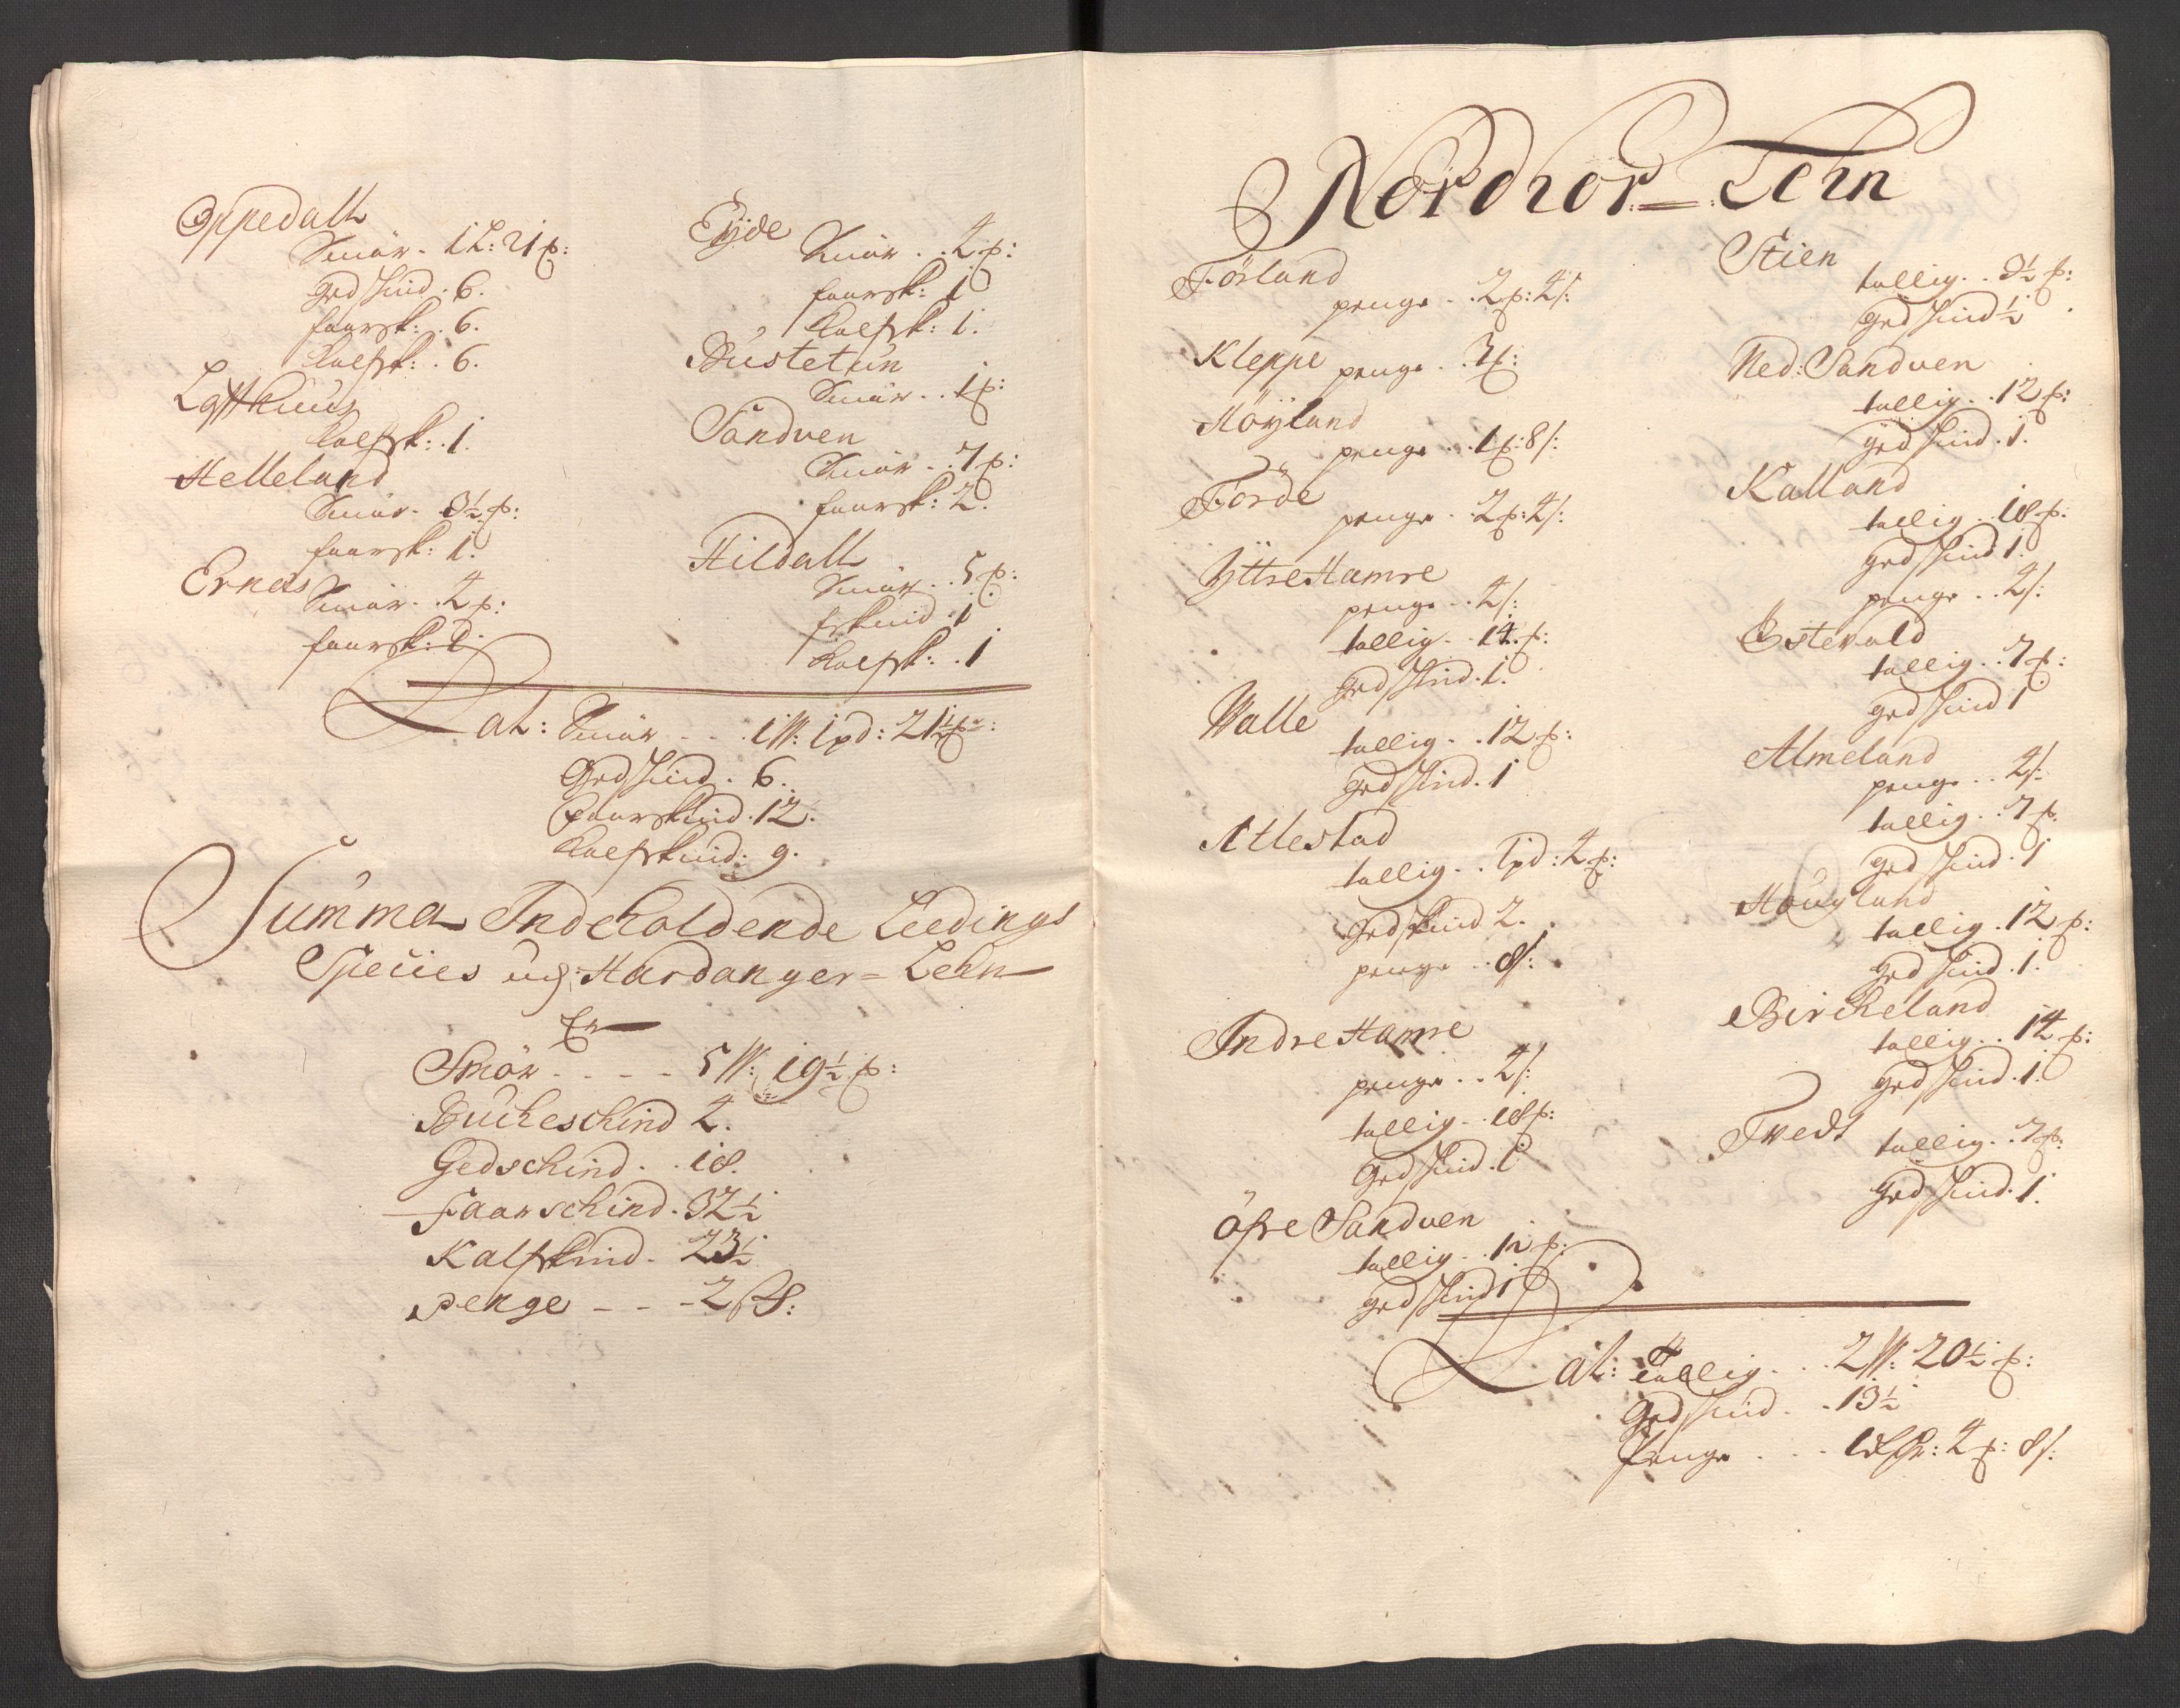 Oppedall
Smör. 1 L: 21 p:
gedskind. 6.
faarsk: . 6.
kalfsk: . 6.
Lotthuus
kalfsk: . 1.
Helleland
Smör. 3½ p:
faarsk: 1.
Ernæs
Smör. . 4 p:
faarsk: 1.
Eyde
Smör. . 4 p:
faarsk: 1
kalfsk: 1.
Bustetun
Smör. . 1 p:
Sandven
Smör. . 7 p:
faarsk: 2.
Hildall
Smör. . 5 p:
faarskind. 1
kalfsk: . 1
Lat: Smör . . 1 W: 1 pd: 21½ p:
Gedskind. 6.
Faarskind. 12.
kalfskind: 9.
Summa Indeholdende Leedings
Species udj Hardanger = Lehn
Er
Smör . . . . 5 W: 19½ p:
Buckeschind 4.
Gedschind. . 18.
Faarschind. 32½
Kalfskind. 23½
penge - - - 2 ß:
Nordhor = Lehn
Förland
penge . . 2 p: 4 s:
Kleppe penge . . 3 p:
Höyland
penge . . 1 p: 8 s:
Förde
penge . . 2 p: 4 s:
Yttre Hamre
penge . . 4 s:
tallig. . 14 p:
gedskind. 1.
Walle
tallig. . 12 p:
gedskind. 1
Atlestad
tallig. . 1 pd: 4 p:
gedskind 2.
penge . . 8 s:
Indre Hamre
penge . . 4 s:
tallig. . 18 p:
Gedskind. 1
Öfre Sandven
tallig. . 12 p:
gedskind 1
Stien
tallig. . 3½ p:
gedskind ½
Ned: Sandven
tallig. . 12 p:
gedskind. 1.
Kalland
tallig. . 18 p:
gedskind 1.
penge . . 4 s:
Estevold
tallig. . 7 p:
gedskind 1
Almeland
penge . . 4 s:
tallig. . 7 p.
gedskind. 1
Hougland
tallig. 12 p:
gedskind. 1.
Bircheland
tallig. . 14 p:
gedskind. 1.
Tvedt tallig. . 7 p.
gedskind. 1.
Lat: Tallig. . . 2 W: 20½ p:
Gedskind. . . 13½
Penge . . . 1 dlr: 4 p: 8 s: